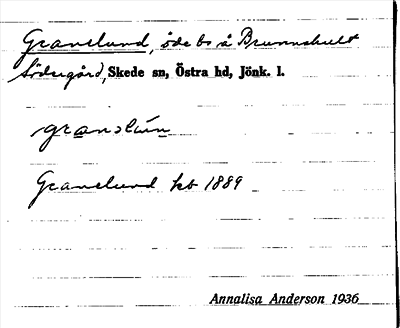 Granelund, öde bs å Brunnshult
Södregård, Skede sn, Östra hd, Jönk. l.
Granelund kb 1889
Annalisa Anderson 1936